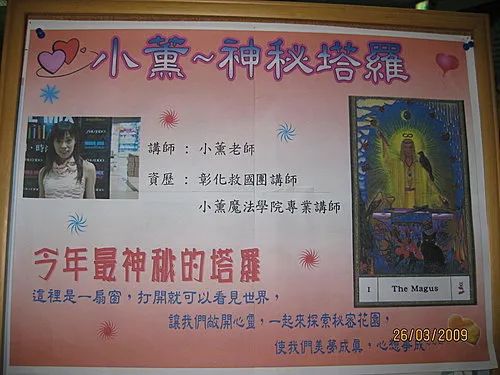 小薰~神秘塔羅
講師 : 小薰老師
資歷 : 彰化救國團講師
小薰魔法學院專業講師
I The Magus
今年最神秘的塔羅
這裡是一扇窗，打開就可以看見世界，
讓我們敞開心靈，一起來探索秘密花園，
使我們美夢成真，心想事成
26/03/2009